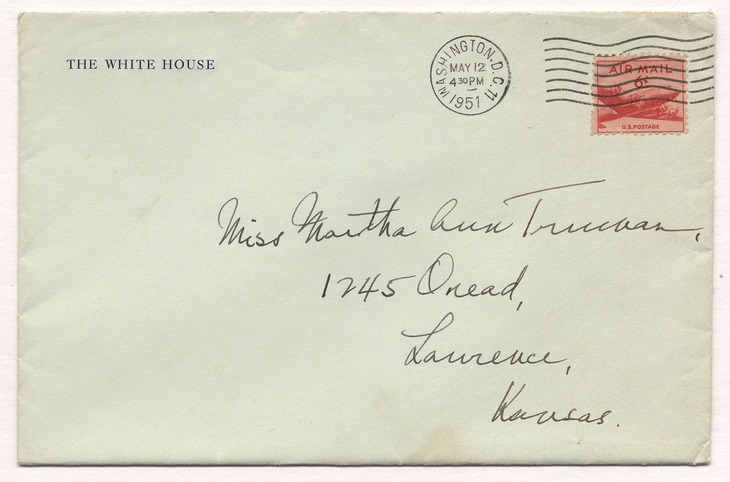 THE WHITE HOUSE
WASHINGTON, D.C. 11
MAY 12
4 30 PM
1951
AIR MAIL
6¢
U.S. POSTAGE
Miss Martha Ann Truman,
1245 Oread,
Lawrence,
Kansas.